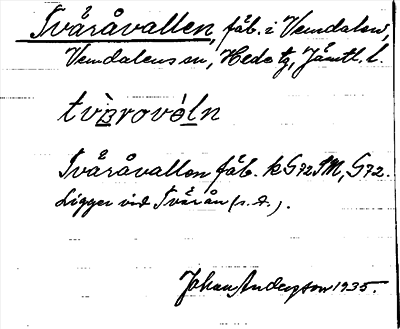 Tvåråvallen, fäb. i Vemdalen,
Vemdalens sn, Hede tg, Jämtl. l.
Tväråvallen fäb. k G72 SM, G72.
Ligger vid Tvärån (s. d.).
Johan Anderson 1935.